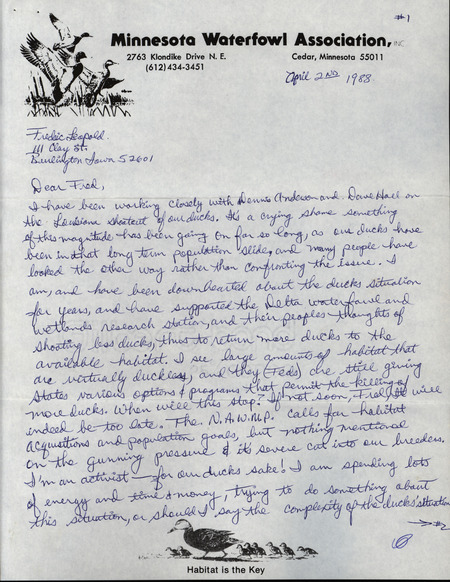 #1
Minnesota Waterfowl Association, INC
2763 Klondike Drive N. E. Cedar, Minnesota 55011
(612) 434-3451
April 2ND 1988
Fredic Leopold
111 Clay St.
Burlington Iowa 52601
Dear Fred,
I have been working closely with Dennis Anderson and Dave Hall on
the Lousiana shootout of our ducks. It's a crying shame something
of this magnitude has been going on for so long, as our ducks have
been in that long term population slide, and many people have
looked the other way rather than confronting the issue. I
am, and have been downhearted about the ducks situation
for years, and have supported the Delta waterfowl and
wetlands research station, and their peoples thoughts of
shooting less ducks, thus to return more ducks to the
available habitat. I see large amounts of habitat that
are virtually duckless, and they (Feds) are still giving
States various options & programs that permit the killing of
more ducks. When will this stop? If not soon, Fred, it will
indeed be too late. The N.A.W.M.P. calls for habitat
acquisitions and population goals, but nothing mentioned
on the gunning pressure & it's severe cut into our breeders.
I'm an activist - for our ducks sake! I am spending lots
of energy and time & money, trying to do something about
this situation, or should I say the complexity of the ducks' situation
#2
Habitat is the Key